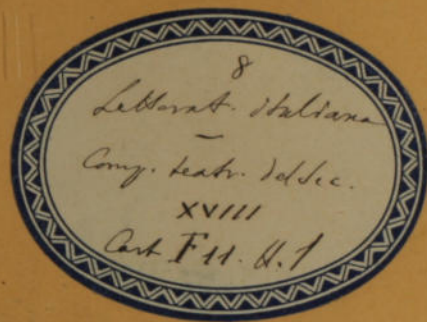 8
Letterat. italiana
—
Comp. teatr. del sec.
XVIII
Cart. F 11. N. 1